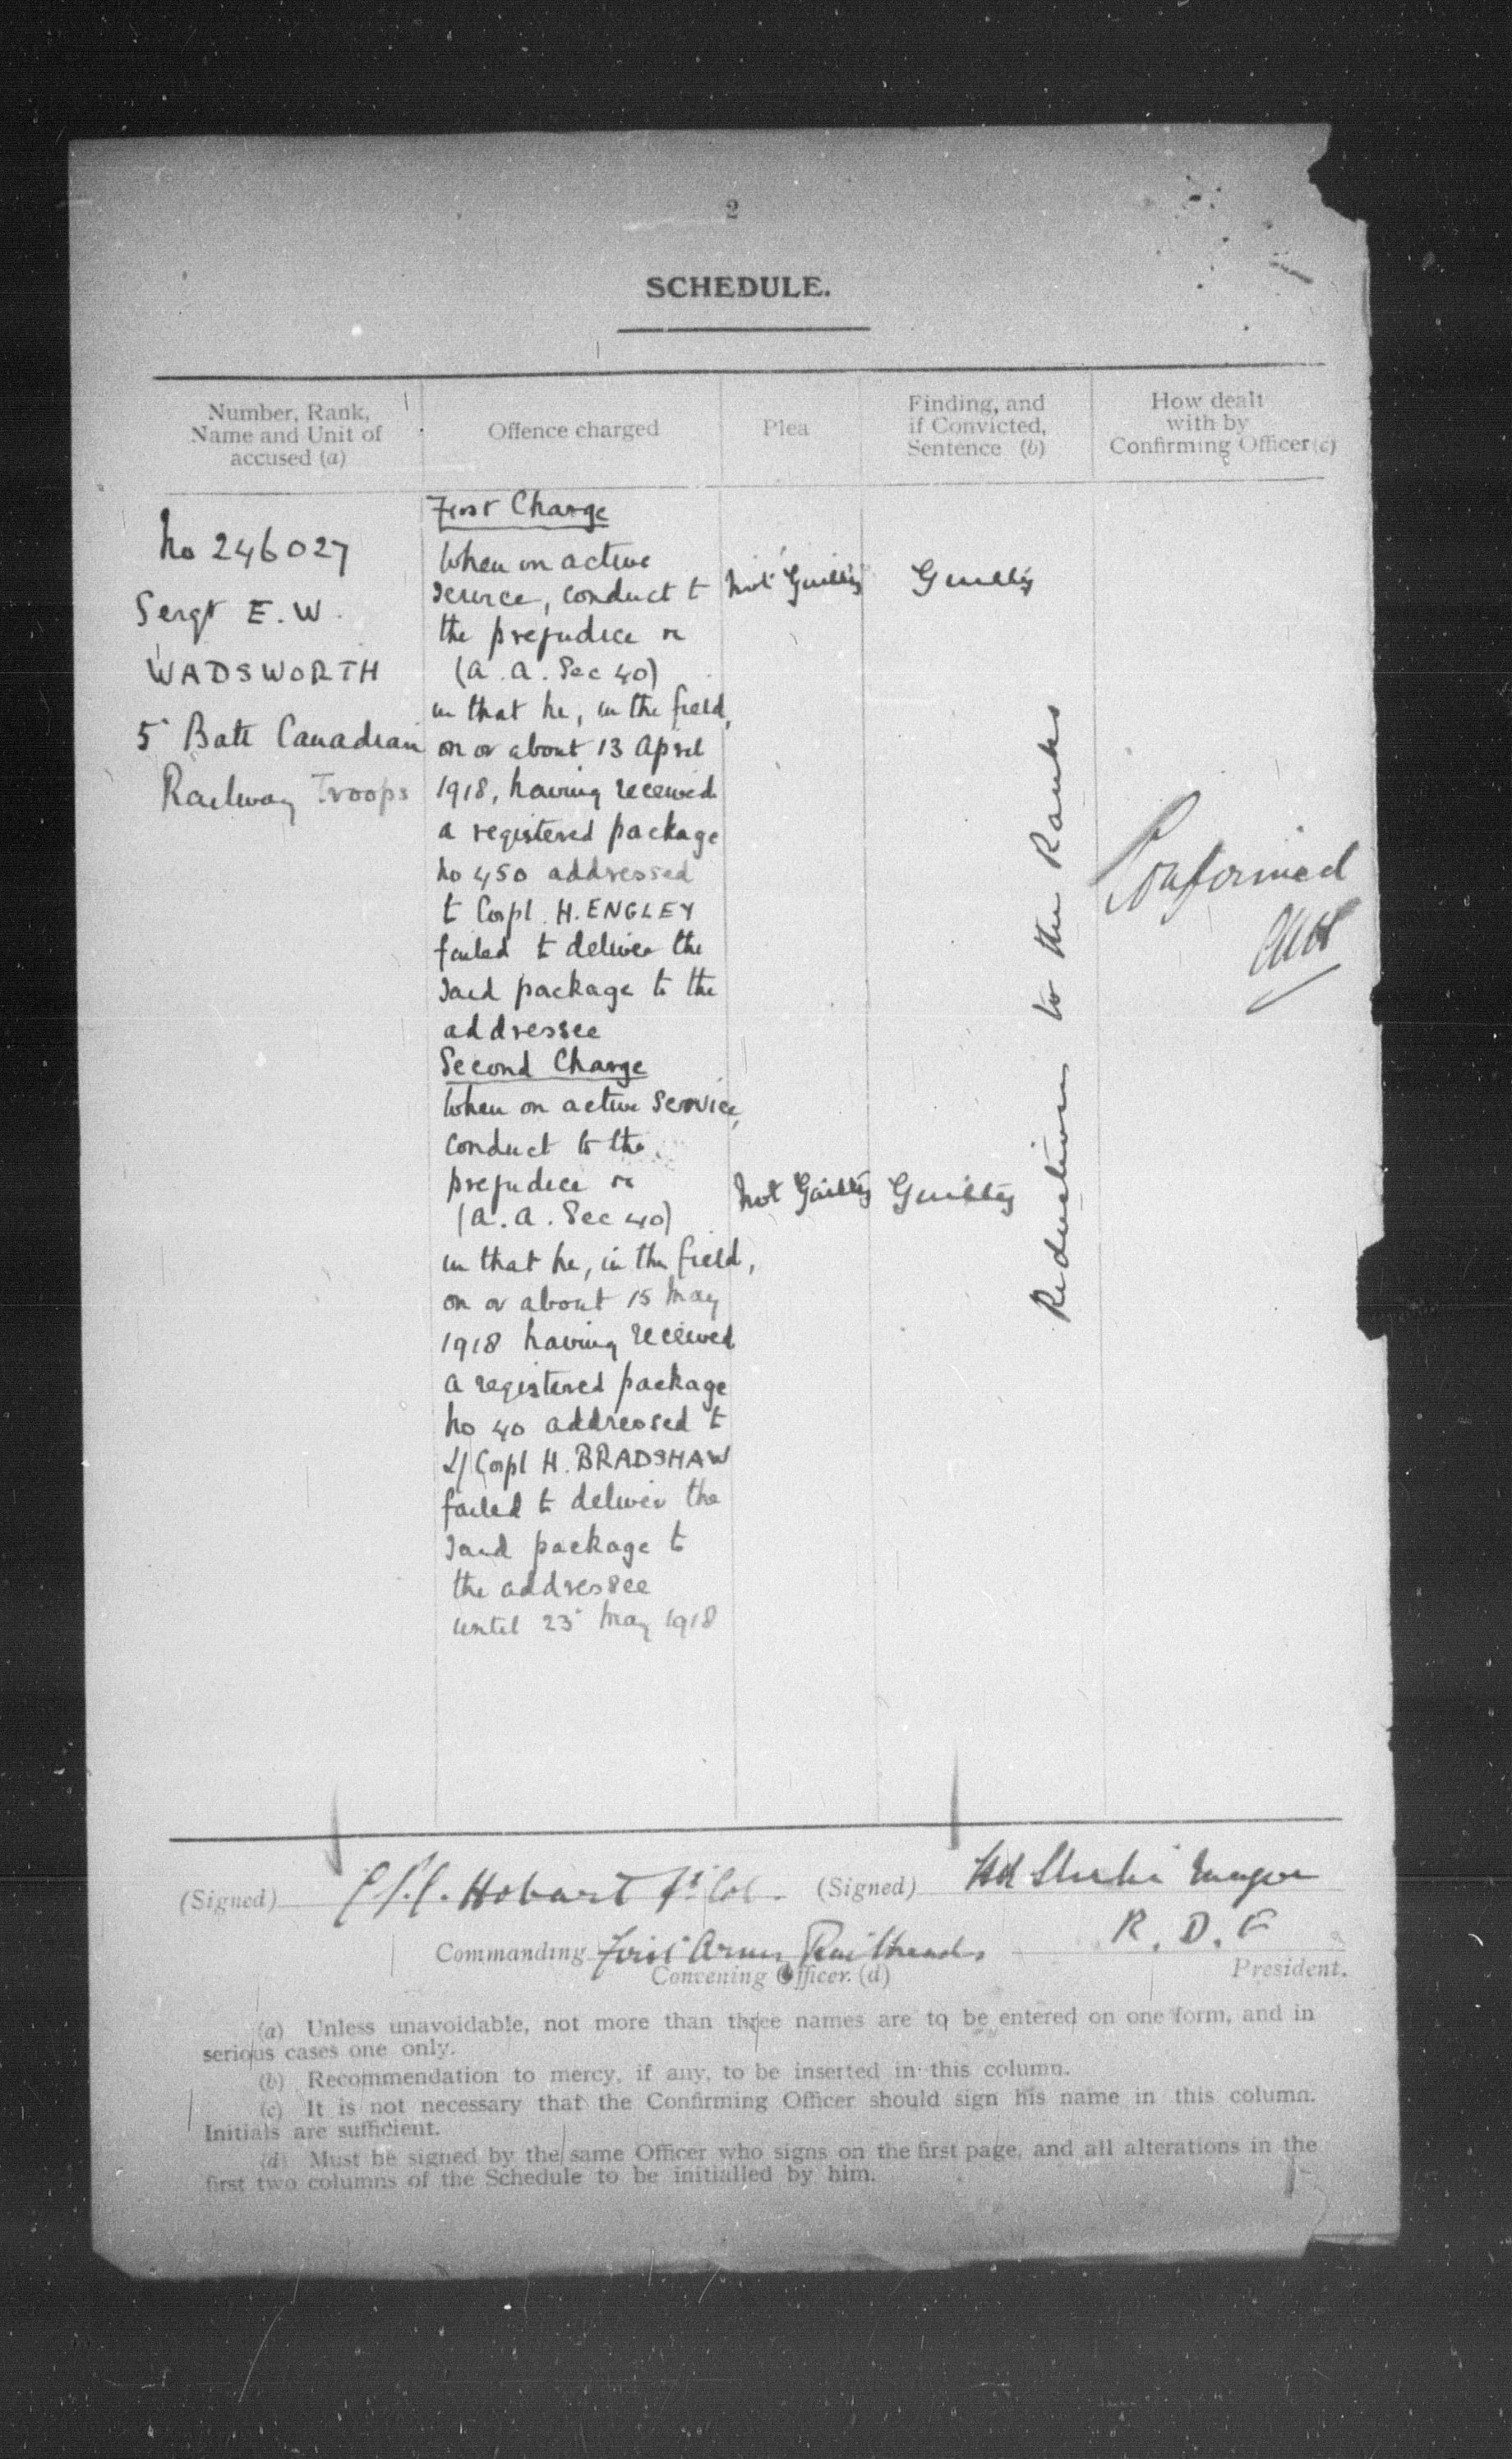 2
SCHEDULE.
Number, Rank,
Name and Unit of
accused (a)
Offence charged
Plea
Finding, and
if Convicted,
Sentence (b)
How dealt
with by
Confirming Officer (c)
No 246027
Sergt E. W.
WADSWORTH
5 Batt Canadian
Railway Troops
First Charge
When on active
service, conduct t
the prejudice re
(A. A. Sec 40)
in that he, in the field,
on or about 13 April
1918, having received
a registered package
No 450 addressed
t Corpl. H. ENGLEY
failed t deliver the
said package to the
addressee
Not Guilty
Guilty
Second Charge
When on active Service,
conduct to the
prejudice re
(A. A. Sec 40)
in that he, in the field,
on or about 15 May
1918 having received
a registered package
No 40 addressed t
L/Corpl H. BRADSHAW
failed t deliver the
said package to
the addressee
until 23 May 1918
Not Guilty
Guilty
Reduction to the Ranks
Confirmed
(Signed) Hobart Lt Col.
(Signed) Major
R. D. F
Commanding First Army Railheads
Convening Officer. (d)
President.
(a) Unless unavoidable, not more than three names are to be entered on one form, and in
serious cases one only.
(b) Recommendation to mercy, if any, to be inserted in this column.
(c) It is not necessary that the Confirming Officer should sign his name in this column.
Initials are sufficient.
(d) Must be signed by the same Officer who signs on the first page, and all alterations in the
first two columns of the Schedule to be initialled by him.